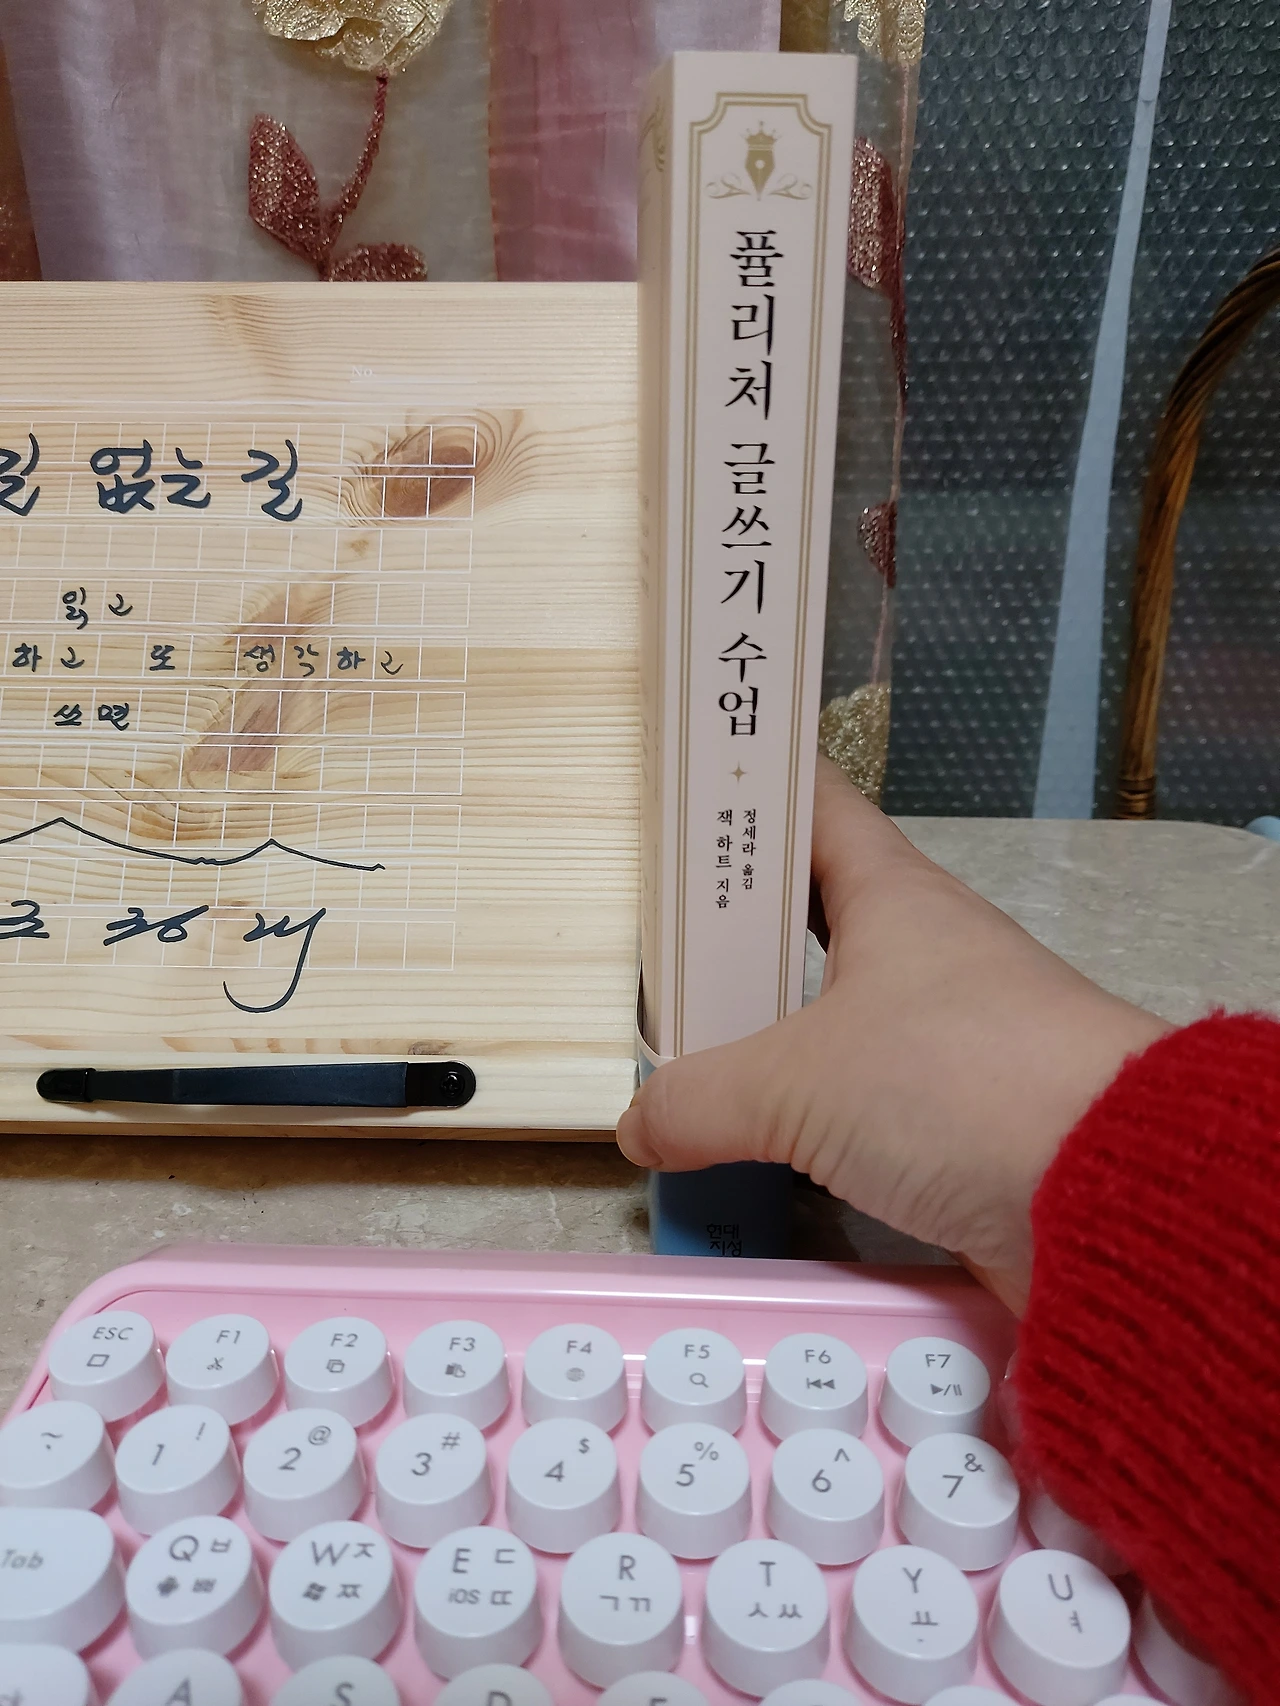 No
길 없는 길
읽고
하고 또 생각하고
쓰면
조정래
퓰리처 글쓰기 수업
잭 하트 지음
정세라 옮김
현대
지성
ESC F1 F2 F3 F4 F5 F6 F7
~ 1 ! 2 @ 3 # 4 $ 5 % 6 ^ 7 &
Tab Q ㅂ ㅃ W ㅈ ㅉ E ㄷ iOS ㄸ R ㄱ ㄲ T ㅅ ㅆ Y ㅛ U ㅕ
A S D F